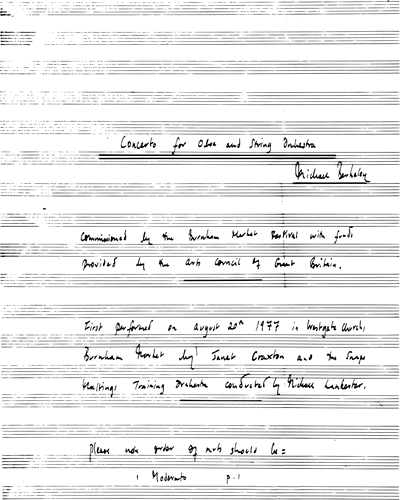 Concerto for Oboe and String Orchestra
Michael Berkeley
Commissioned by the Burnham Market Festival with funds
provided by the Arts Council of Great Britain.
First performed on August 20th 1977 in Westgate Church,
Burnham Market by Janet Craxton and the Snape
Maltings Training Orchestra conducted by Michael Lankester.
Please note order of mvts should be:
1 Moderato p. 1